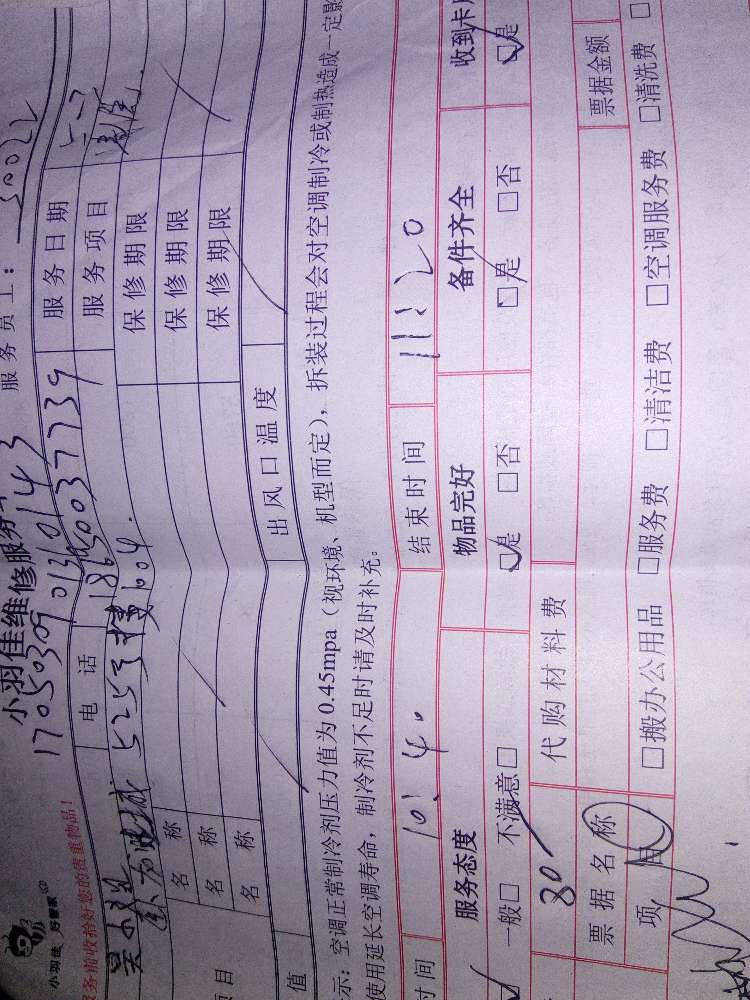 小羽佳 好管家
小羽佳维修服务
服务员工：50022
1705030901360143
服务前收拾好您的贵重物品！
电话 18650037739 服务日期 5-7
5253 1604. 服务项目
名称 保修期限
名称 保修期限
名称 保修期限
项目
值 出风口温度
示：空调正常制冷剂压力值为0.45mpa（视环境、机型而定），拆装过程会对空调制冷或制热造成一定影
使用延长空调寿命，制冷剂不足时请及时补充。
时间 10:40 结束时间 11:20
服务态度 物品完好 备件齐全 收到卡
一般□ 不满意□ □是 □否 □是 □否 □是
80 代购材料费
票据名称 票据金额
项目 □搬办公用品 □服务费 □清洁费 □空调服务费 □清洗费 □